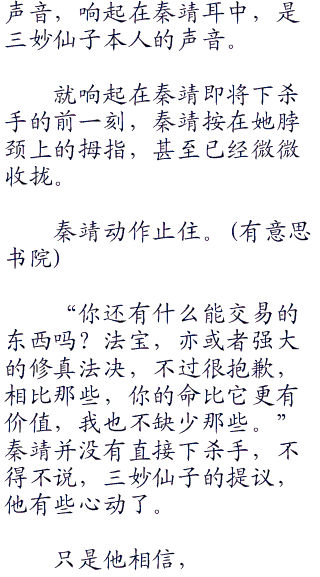 声音，响起在秦靖耳中，是
三妙仙子本人的声音。
就响起在秦靖即将下杀
手的前一刻，秦靖按在她脖
颈上的拇指，甚至已经微微
收拢。
秦靖动作止住。(有意思
书院)
“你还有什么能交易的
东西吗？法宝，亦或者强大
的修真法决，不过很抱歉，
相比那些，你的命比它更有
价值，我也不缺少那些。”
秦靖并没有直接下杀手，不
得不说，三妙仙子的提议，
他有些心动了。
只是他相信，